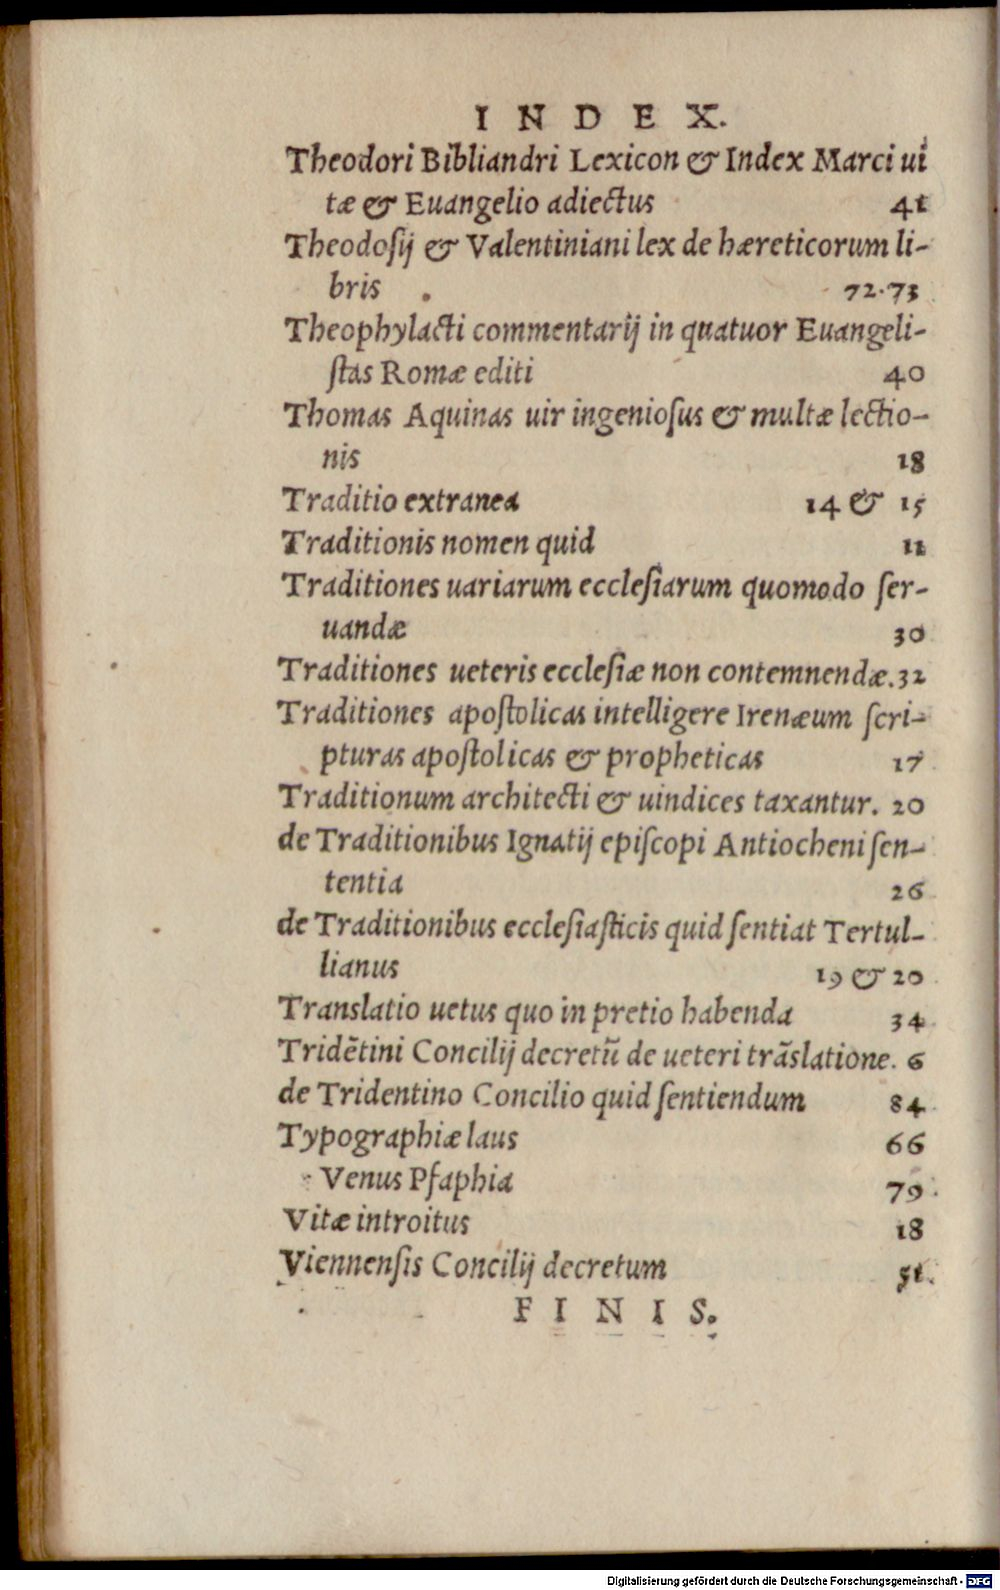 INDEX.
Theodori Bibliandri Lexicon & Index Marci ui
tæ & Euangelio adiectus 41
Theodoſij & Valentiniani lex de hæreticorum li-
bris 72.73
Theophylacti commentarij in quatuor Euangeli-
ſtas Romæ editi 40
Thomas Aquinas uir ingenioſus & multæ lectio-
nis 18
Traditio extranea 14 & 15
Traditionis nomen quid 11
Traditiones uariarum eccleſiarum quomodo ſer-
uandæ 30
Traditiones ueteris eccleſiæ non contemnendæ. 32
Traditiones apoſtolicas intelligere Irenæum ſcri-
pturas apoſtolicas & propheticas 17
Traditionum architecti & uindices taxantur. 20
de Traditionibus Ignatij epiſcopi Antiocheni ſen-
tentia 26
de Traditionibus eccleſiaſticis quid ſentiat Tertul-
lianus 19 & 20
Translatio uetus quo in pretio habenda 34
Tridẽtini Concilij decretũ de ueteri trãslatione. 6
de Tridentino Concilio quid ſentiendum 84
Typographiæ laus 66
Venus Pſaphia 79
Vitæ introitus 18
Viennenſis Concilij decretum 51.
FINIS.
Digitalisierung gefördert durch die Deutsche Forschungsgemeinschaft - DFG